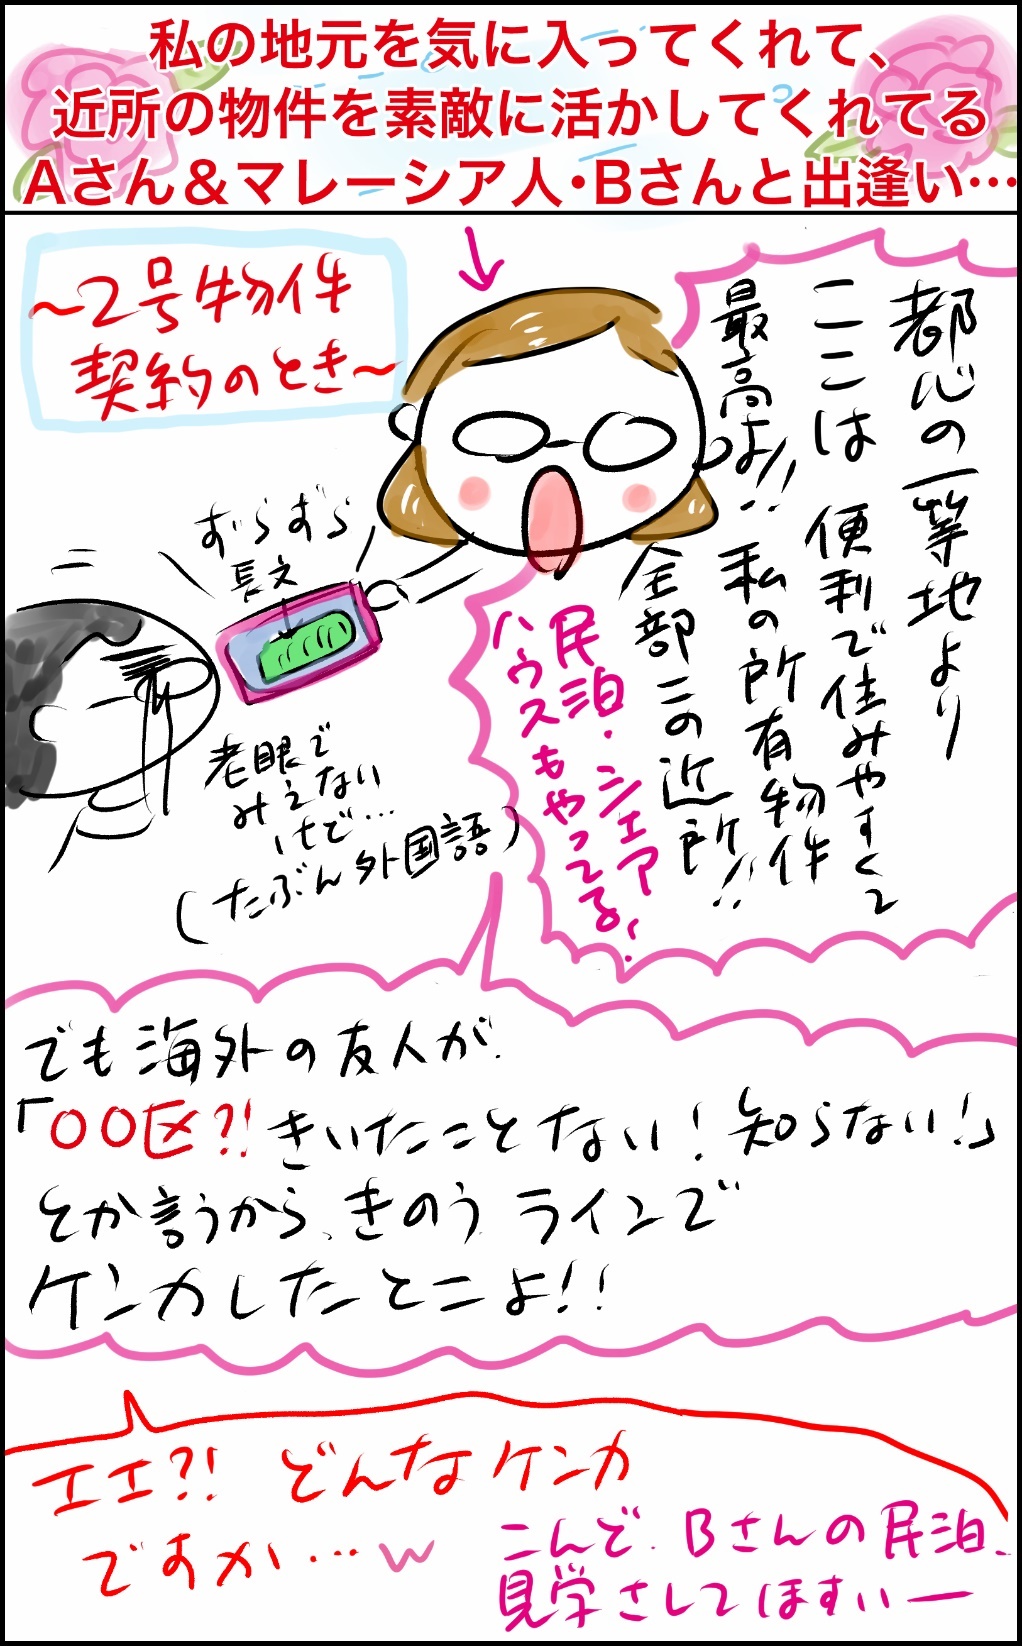 私の地元を気に入ってくれて、
近所の物件を素敵に活かしてくれてる
Aさん＆マレーシア人・Bさんと出逢い…
〜2号物件
契約のとき〜
都心の一等地より
ここは便利で住みやすくて
最高よ!!私の所有物件
全部この近所!!
民泊・シェア
ハウスもやってる、
ずらずら
長文
老眼で
みえない
けど…
(たぶん外国語)
でも海外の友人が、
「○○区?!きいたことない!知らない!」
とか言うから、きのうラインで
ケンカしたとこよ!!
エエ?!どんなケンカ
ですか…w
こんど、Bさんの民泊、
見学さしてほすぃー